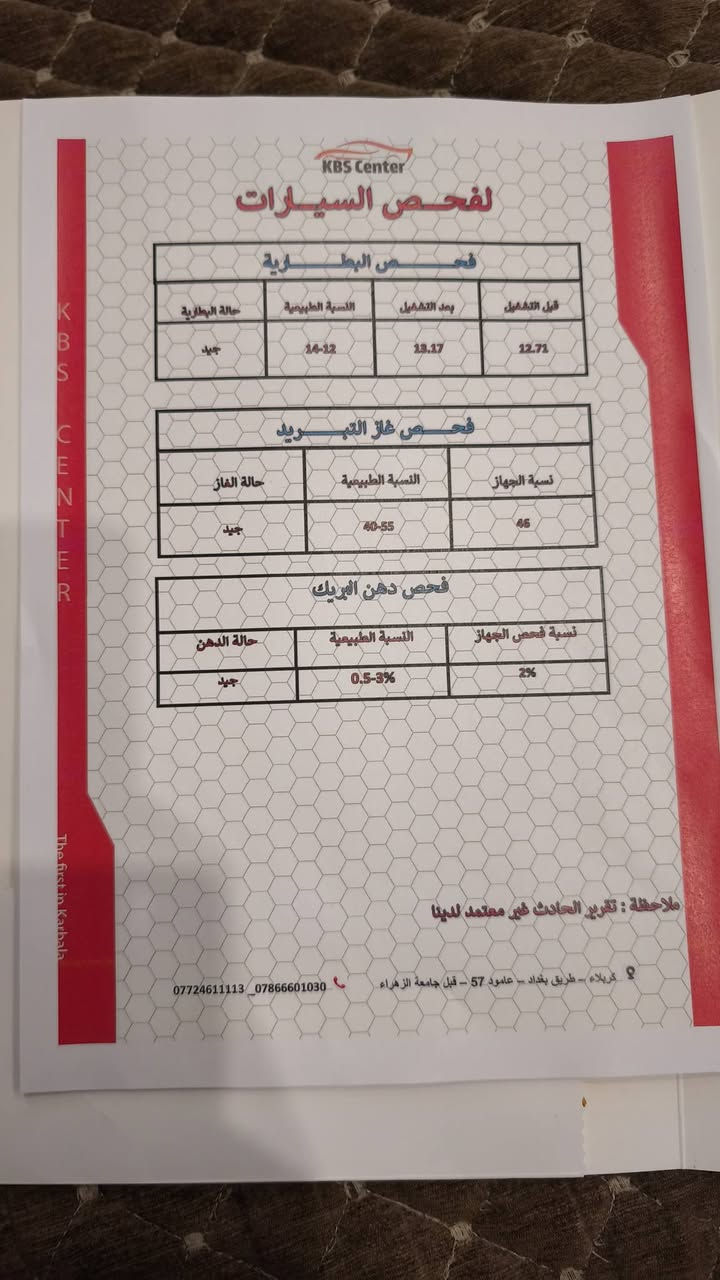 KBS Center
لفحـــص السيـــارات
فحـــــــص البطـــــــــارية
قبل التشغيل بعد التشغيل النسبة الطبيعية حالة البطارية
12.71 13.17 14-12 جيد
فحـــــص غاز التبـــــريد
نسبة الجهاز النسبة الطبيعية حالة الغاز
46 40-55 جيد
فحص دهن البريك
نسبة فحص الجهاز النسبة الطبيعية حالة الدهن
2% 0.5-3% جيد
ملاحظة : تقرير الحادث غير معتمد لدينا
كربلاء – طريق بغداد – عامود 57 – قبل جامعة الزهراء
07724611113 _07866601030
KBS CENTER
The first in Karbala